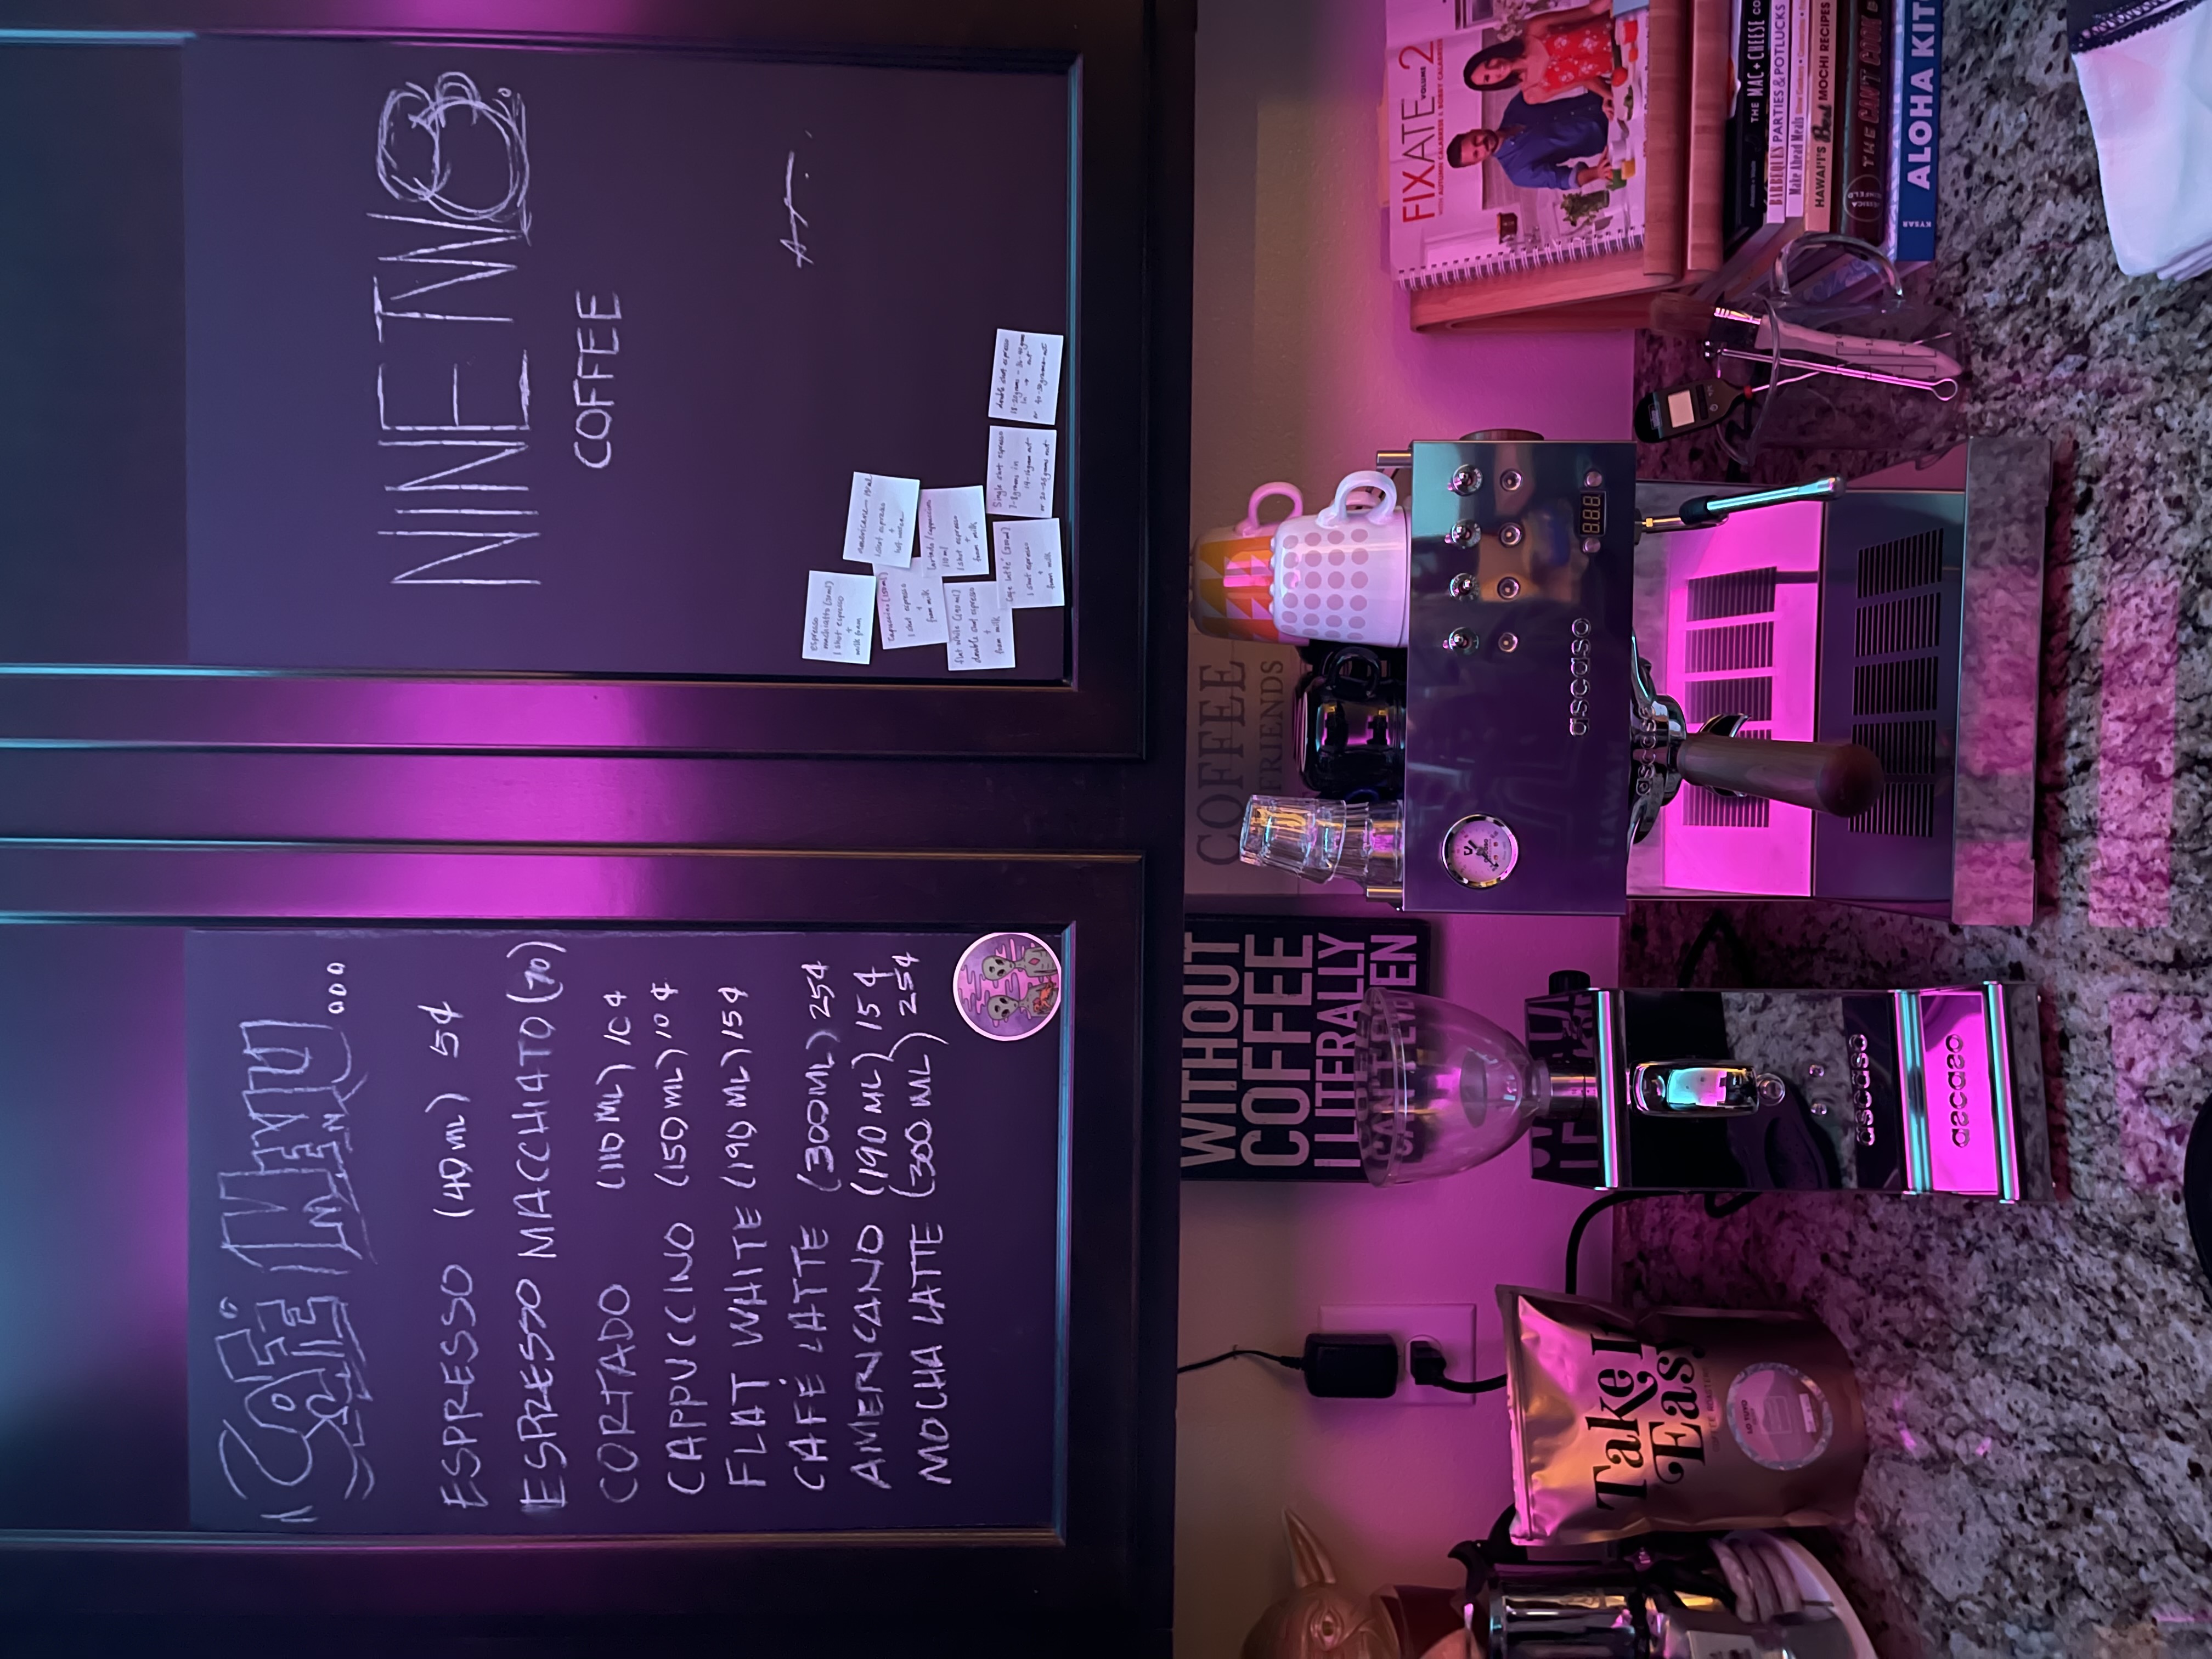 CAFÉ MENU...
ESPRESSO (40 ML) 5¢
ESPRESSO MACCHIATO (70)
CORTADO (110 ML) 10¢
CAPPUCCINO (150 ML) 10¢
FLAT WHITE (190 ML) 15¢
CAFÉ LATTE (300ML) 25¢
AMERICANO (190 ML) 15¢
MOCHA LATTE (300 ML) 25¢
NINE TWO
COFFEE
espresso
1 shot espresso
+
milk foam
americano
1 shot espresso
+
hot water
cappuccino (150ml)
1 shot espresso
+
foam milk
cortado/cappuccino
110 ml
1 shot espresso
+
foam milk
flat white (190 ml)
double shot espresso
+
foam milk
cafe latte (300ml)
1 shot espresso
+
foam milk
Single shot espresso
7-8grams in
or
double shot espresso
in → out
or
WITHOUT
COFFEE
I LITERALLY
CAN'T EVEN
COFFEE
FRIENDS
Take It
Easy
COFFEE ROASTERS
LO TUYO
ascaso
ascaso
ascaso
ascaso
ascaso
FIXATE VOLUME 2
WITH AUTUMN CALABRESE & BOBBY CALABRESE
THE MAC + CHEESE CO
BARBEQUES PARTIES & POTLUCKS
Make Ahead Meals
HAWAI'I'S Best MOCHI RECIPES
THE CAN'T COOK
KYSAR ALOHA KIT